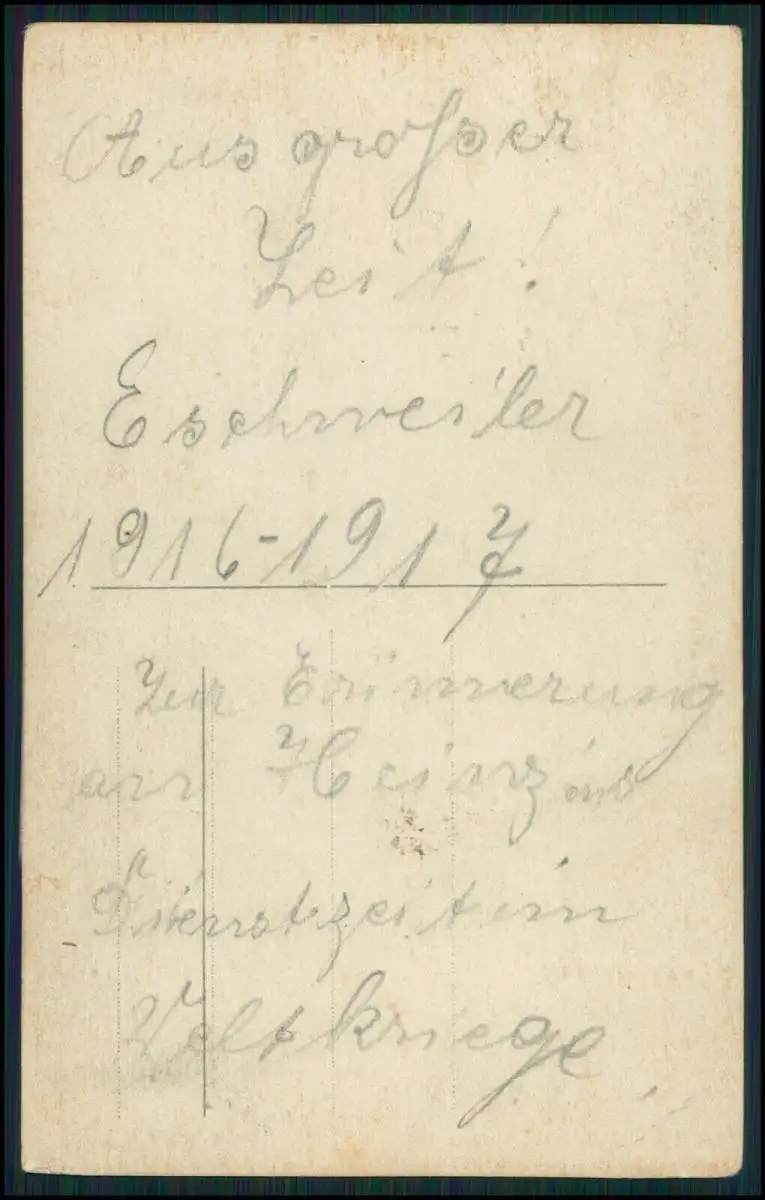 Aus grosser
Zeit!
Eschweiler
1916-1917
Zur Erinnerung
an Heinz
Dienstzeit im
Weltkriege.